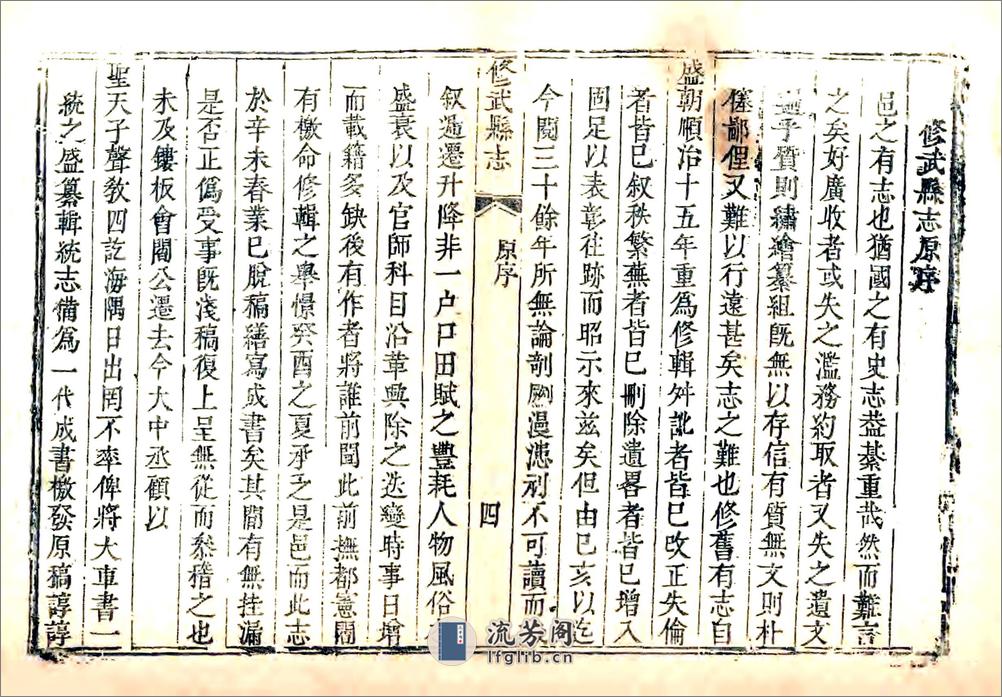 修武縣志原序
邑之有志也猶國之有史志葢綦重哉然而難言
之矣好廣收者或失之濫務約取者又失之遺文
乎質則繡繪纂組旣無以存信有質無文則朴
僿鄙俚又難以行遠甚矣志之難也修舊有志自
盛朝順治十五年重為修輯舛訛者皆已改正失倫
者皆已叙秩繁蕪者皆已刪除遺畧者皆已增入
固足以表彰往跡而昭示來兹矣但由已亥以迄
今閱三十餘年所無論剞劂漫漶刓不可讀而
修武縣志
原序
四
叙遞遷升降非一户口田賦之豐耗人物風俗
盛衰以及官師科目沿革興除之迭變時事日增
而載籍多缺後有作者將誰前聞此前撫都憲閻
有檄命修輯之舉憬癸酉之夏承乏是邑而此志
於辛未春業已脫稿繕寫成書矣其間有無挂漏
是否正僞受事旣淺稿復上呈無從而叅稽之也
未及鏤板會閻公遷去今大中丞顧以
聖天子聲敎四訖海隅日出罔不率俾將大車書一
統之盛纂輯統志備為一代成書檄發原稿諄諄
流芳阁
lfglib.cn